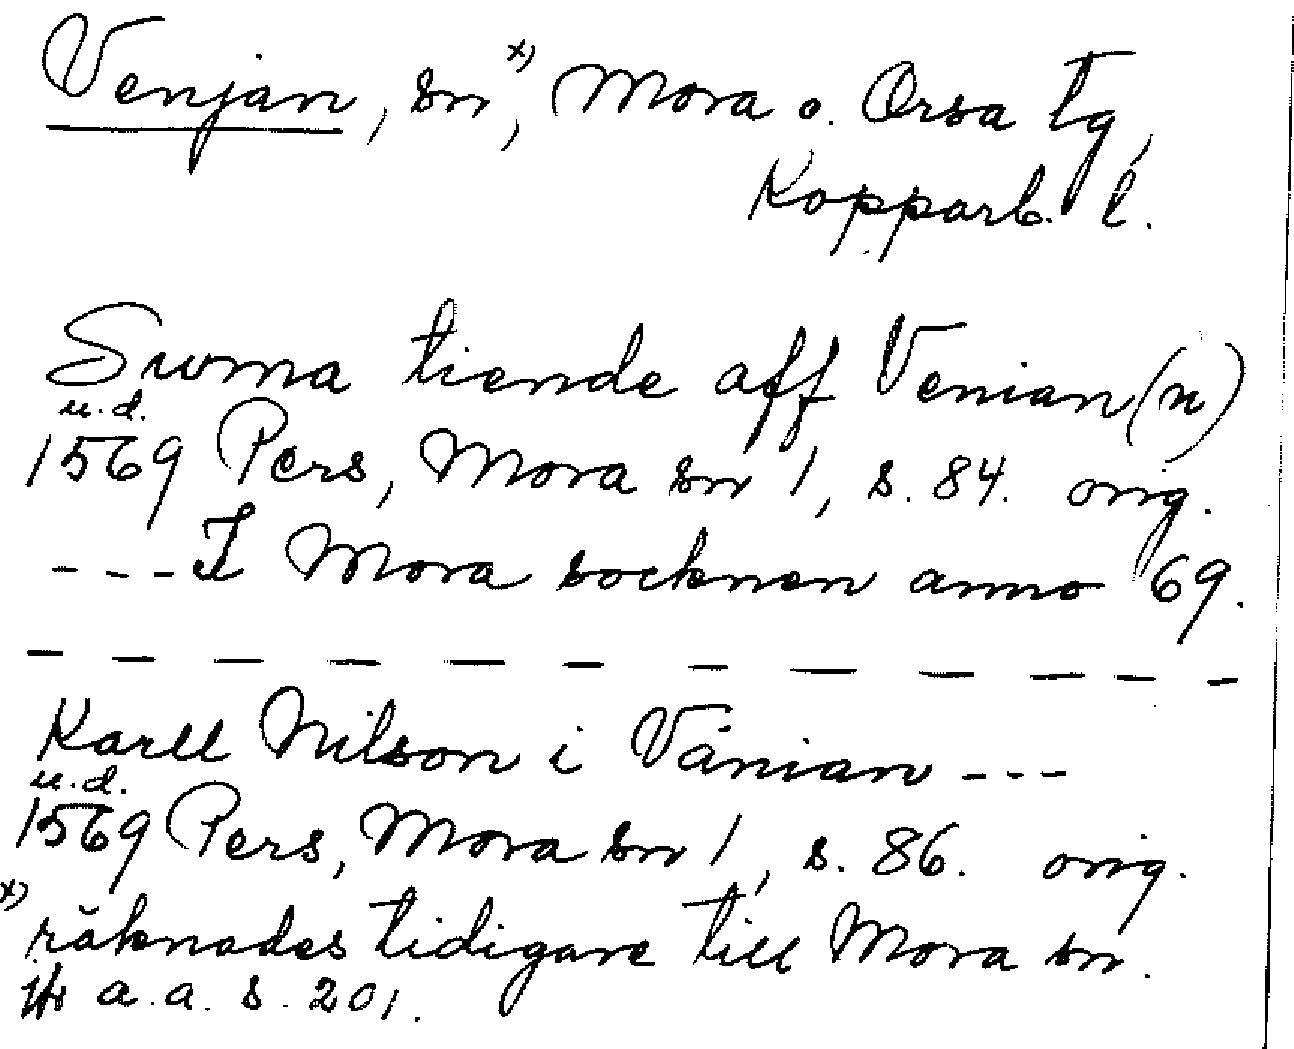 Venjan, sn,ˣ⁾ Mora o. Orsa tg,
Kopparb. l.
Suma tiende aff Venian(n)
u.d.
1569 Pers, Mora sn 1, s. 84. orig.
---I Mora socknen anno 69.
Karll Nilson i Vänian ---
u.d.
1569 Pers, Mora sn 1, s. 86. orig.
x) räknades tidigare till Mora sn.
a.a. s. 201.